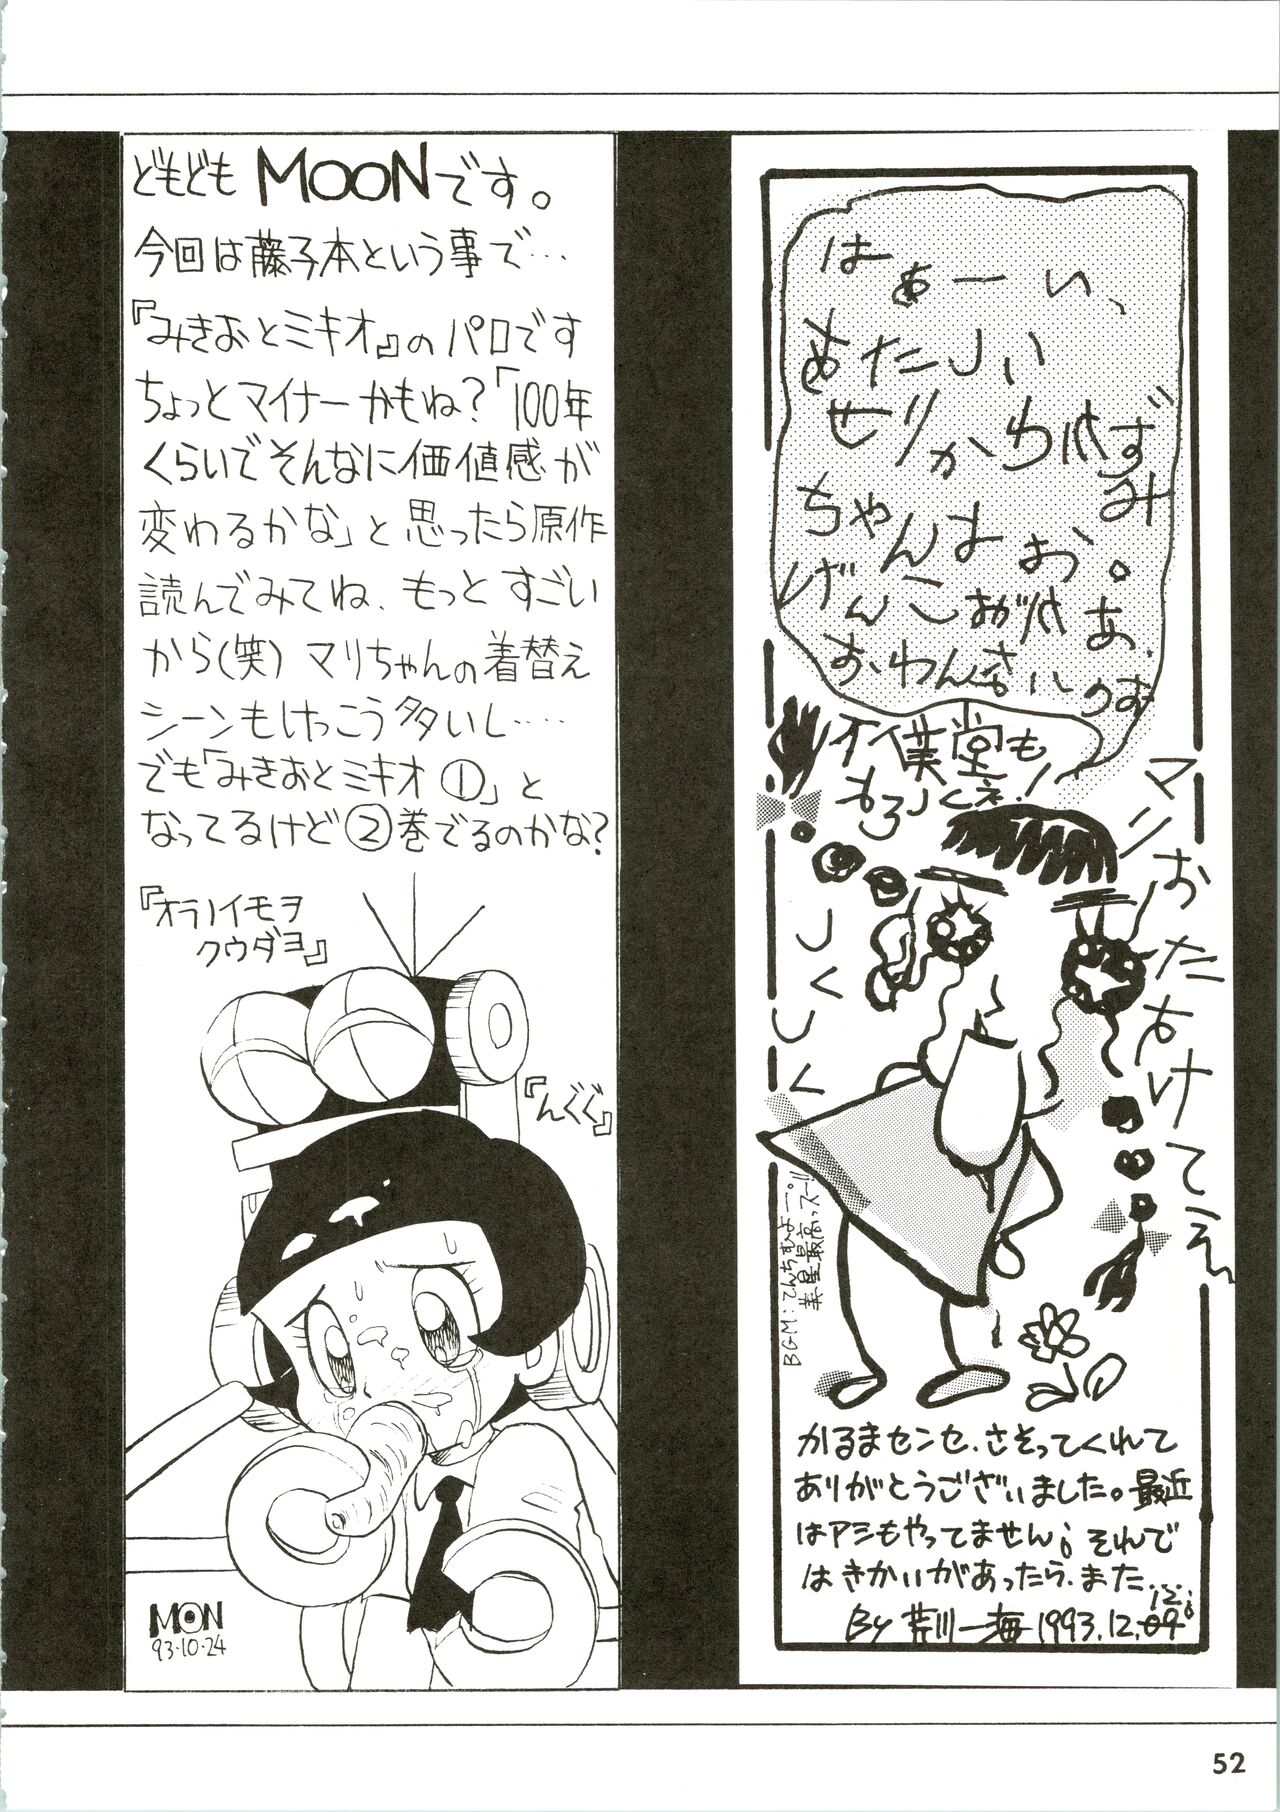 はぁーい、
あたしぃ
せりかわいずみ
ちゃんよぉ。
げんこぉがぁ、
おわんなぃのぉ
イ業堂も
よろしくネ!
マリおたすけてえ
しくしく
BGM:てんちむよー。!!
美星最高っスー!!
かるまセンセ、さそってくれて
ありがとうございました。最近
はアシもやってません。それで
はきかいがあったら、また
By 芹川一海 1993.12.
どもども MOONです。
今回は藤子本という事で…
『みきおとミキオ』のパロです
ちょっとマイナーかもね?「100年
くらいでそんなに価値感が
変わるかな」と思ったら原作
読んでみてね、もっとすごい
から(笑)マリちゃんの着替え
シーンもけっこう多いし‥‥
でも「みきおとミキオ①」と
なってるけど②巻でるのかな?
『オラノイモヲ
クウダヨ』
『んぐぐ』
MOON
93・10・24
52